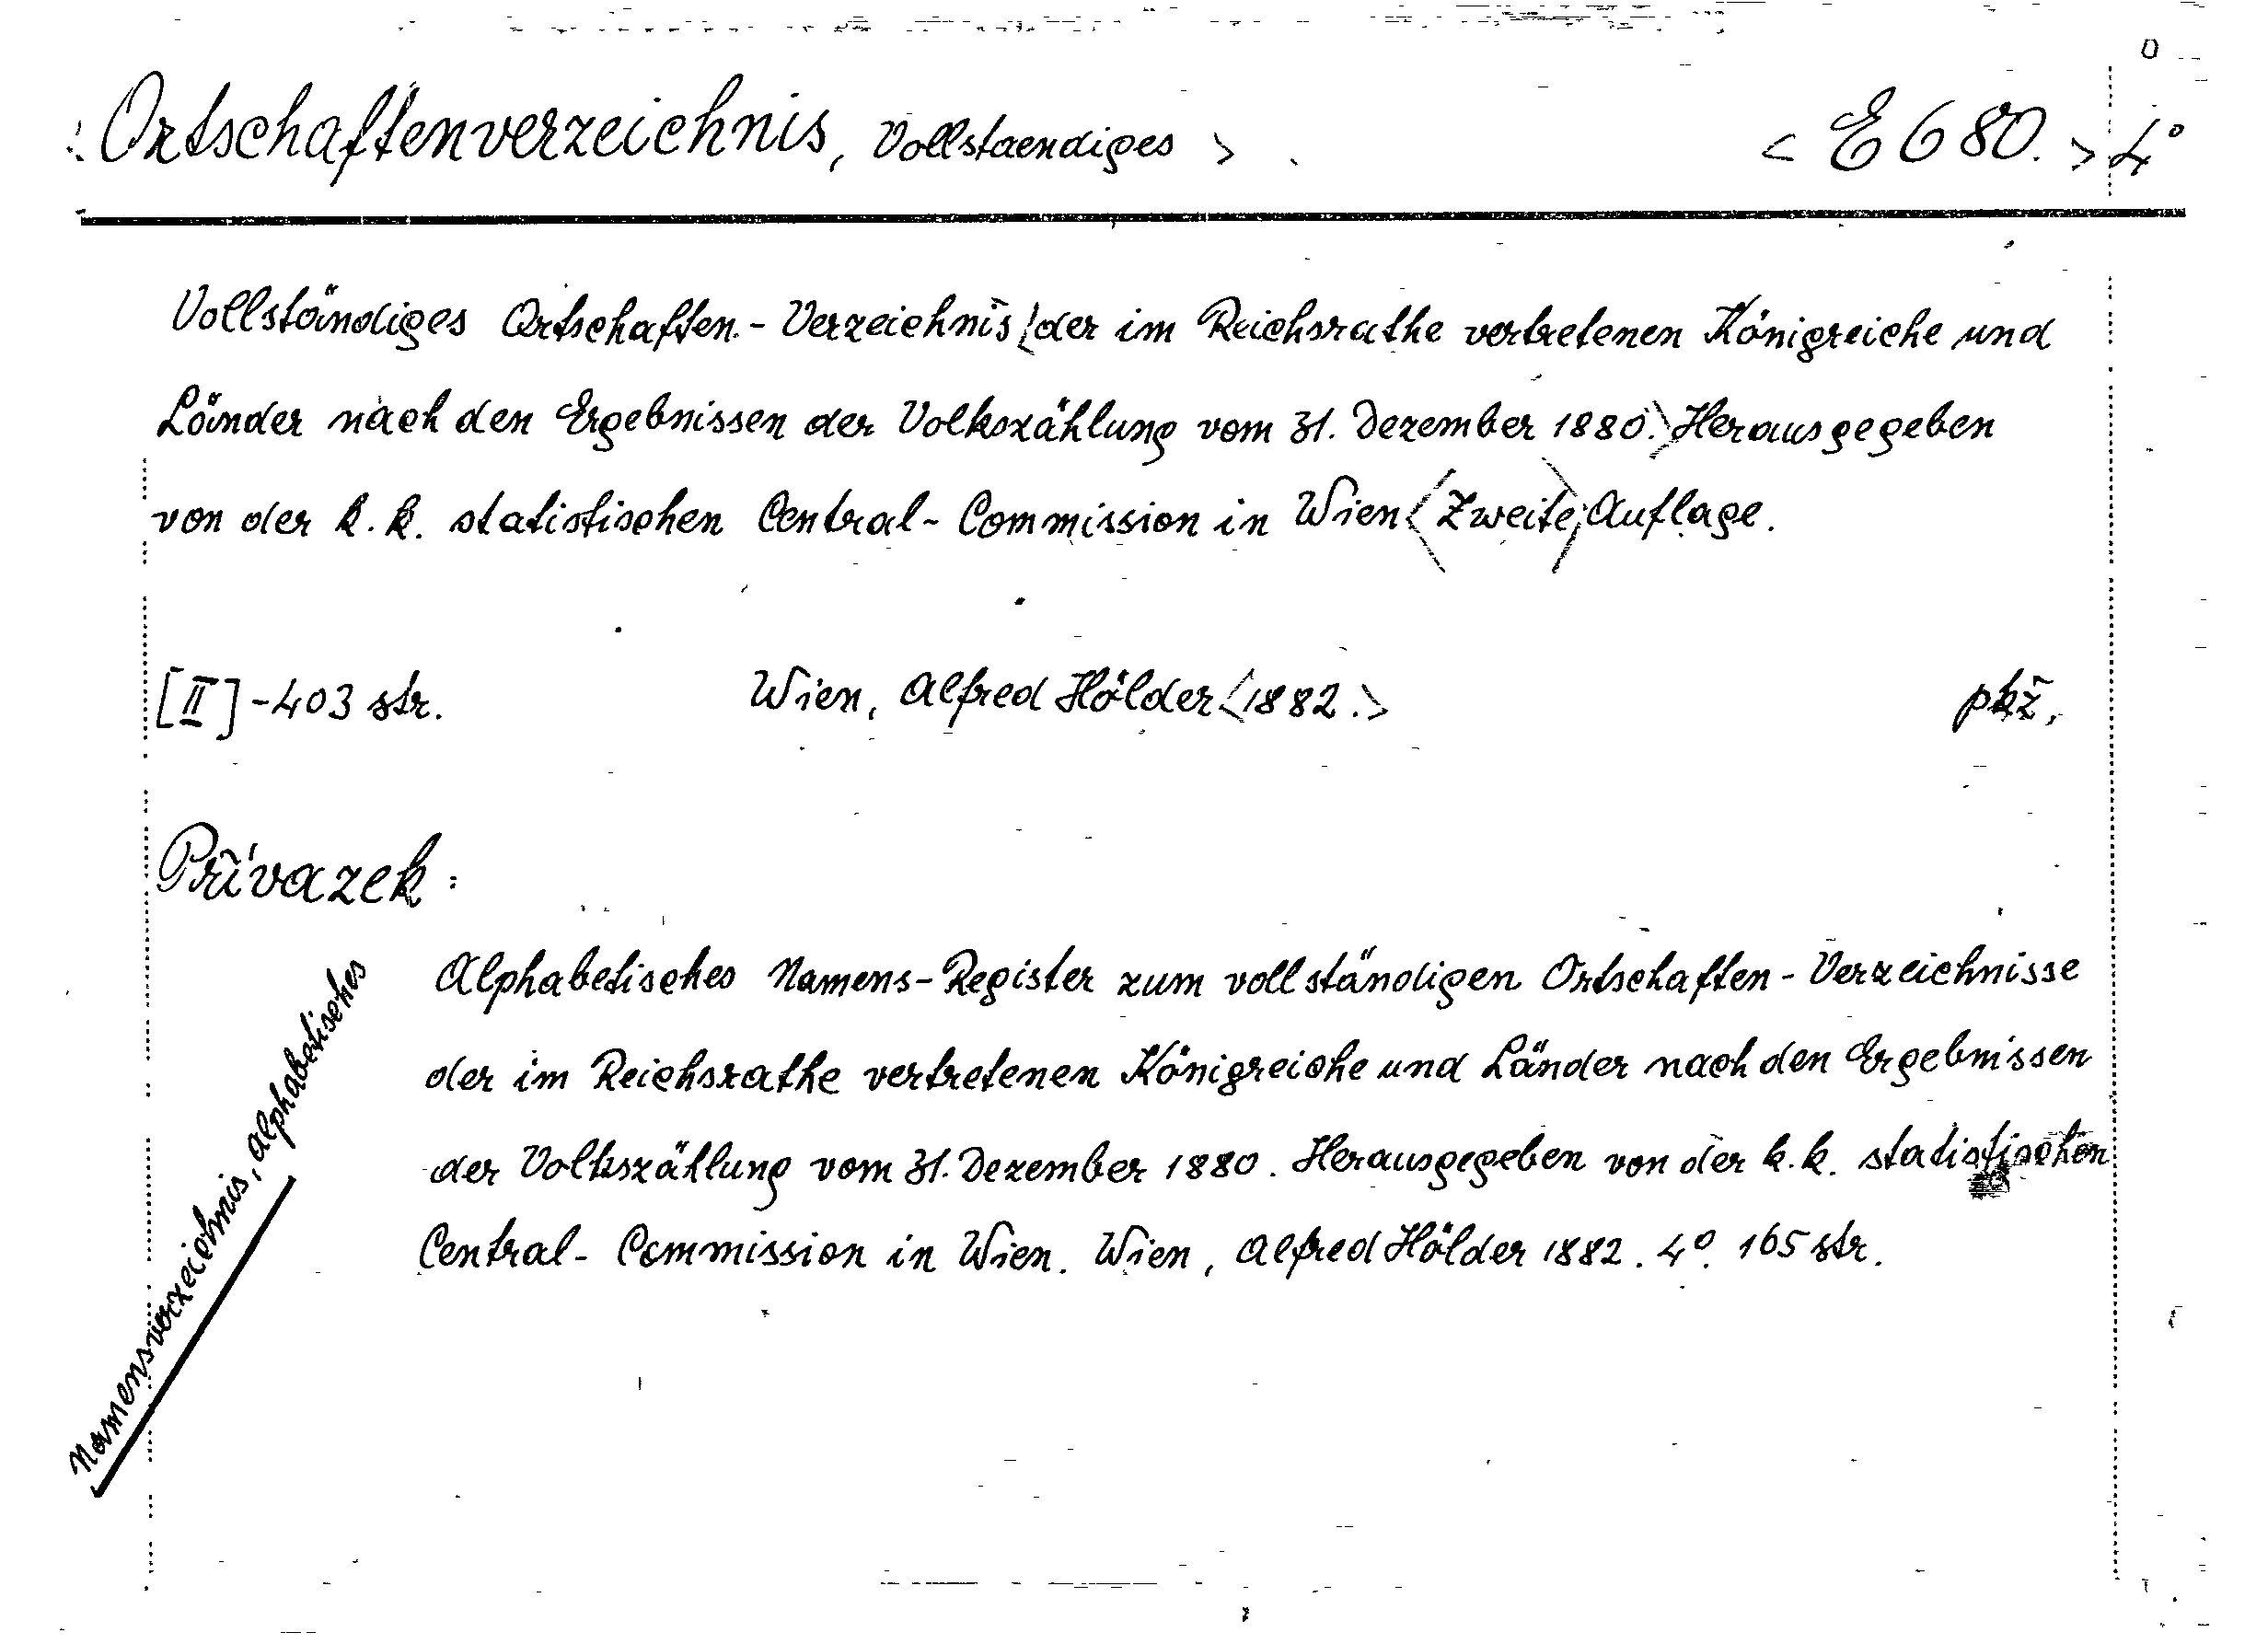 Ortschaftenverzeichnis, Vollstaendiges > < E 680. > 4°
Vollständiges Ortschaften-Verzeichnis <der im Reichsrathe vertretenen Königreiche und
Länder nach den Ergebnissen der Volkszählung vom 31. Dezember 1880.> Herausgegeben
von der k. k. statistischen Central-Commission in Wien <Zweite> Auflage.
[II]-403 str. Wien, Alfred Hölder <1882.> pkž.
Přívazek:
Alphabetisches Namens-Register zum vollständigen Ortschaften-Verzeichnisse
der im Reichsrathe vertretenen Königreiche und Länder nach den Ergebnissen
der Volkszählung vom 31. Dezember 1880. Herausgegeben von der k. k. statistischen
Central-Commission in Wien. Wien, Alfred Hölder 1882. 4°. 165 str.
Namensverzeichnis, alphabetisches